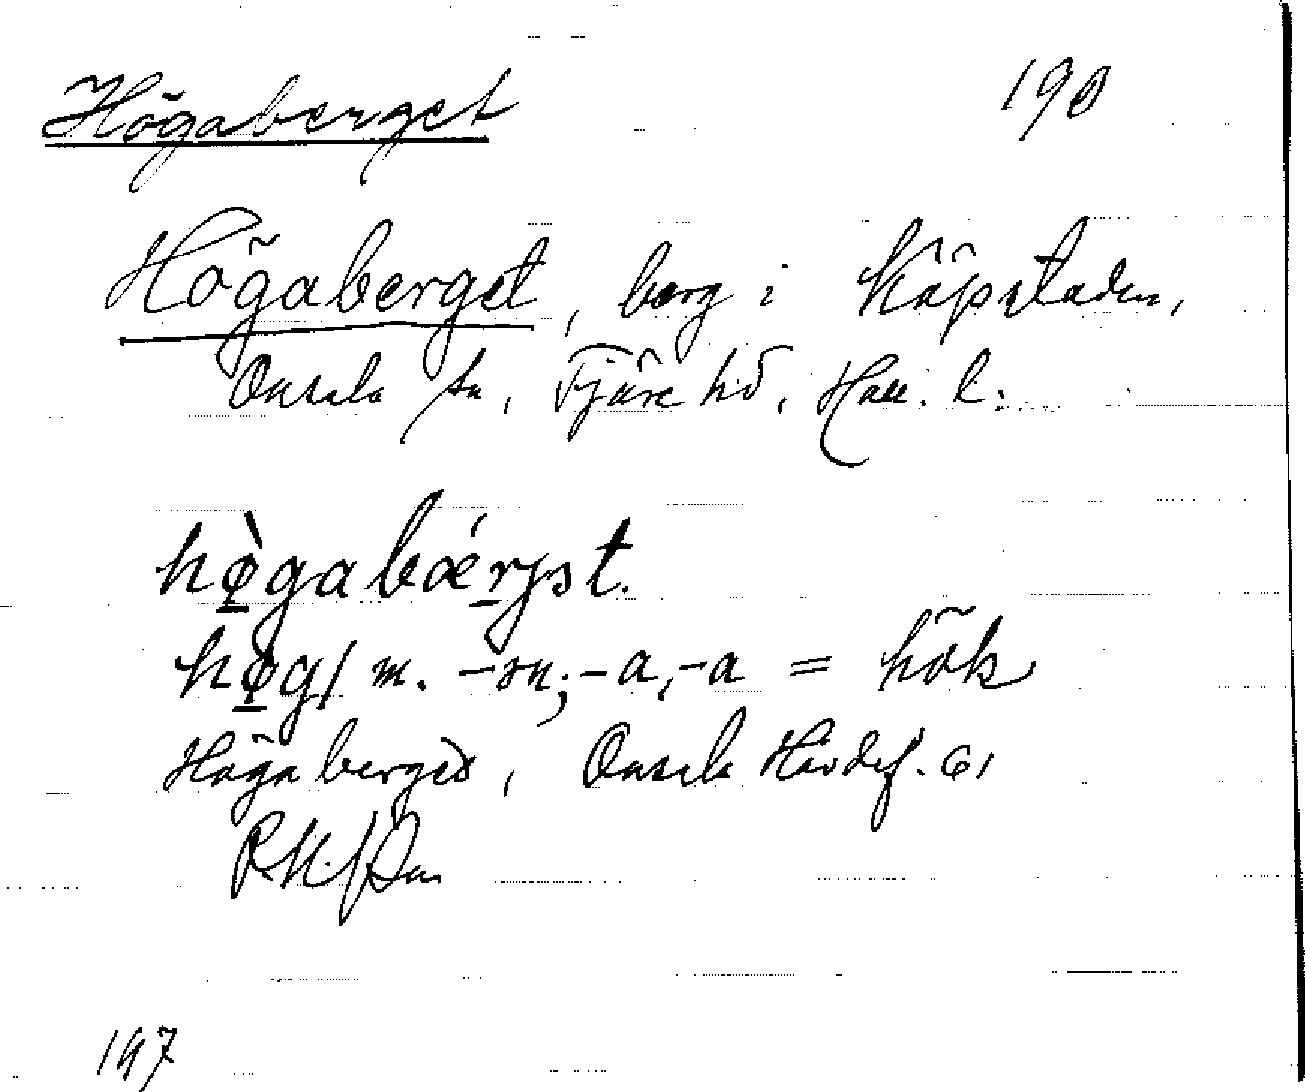 Högaberget 190
Högaberget, berg i Köpstaden,
Onsala sn, Fjäre hd, Hall. l.
hø̀gabǽrjət.
høg/ m. -ən; -a, -a = hök
Höga berged, Onsala Hävdef. 61
197